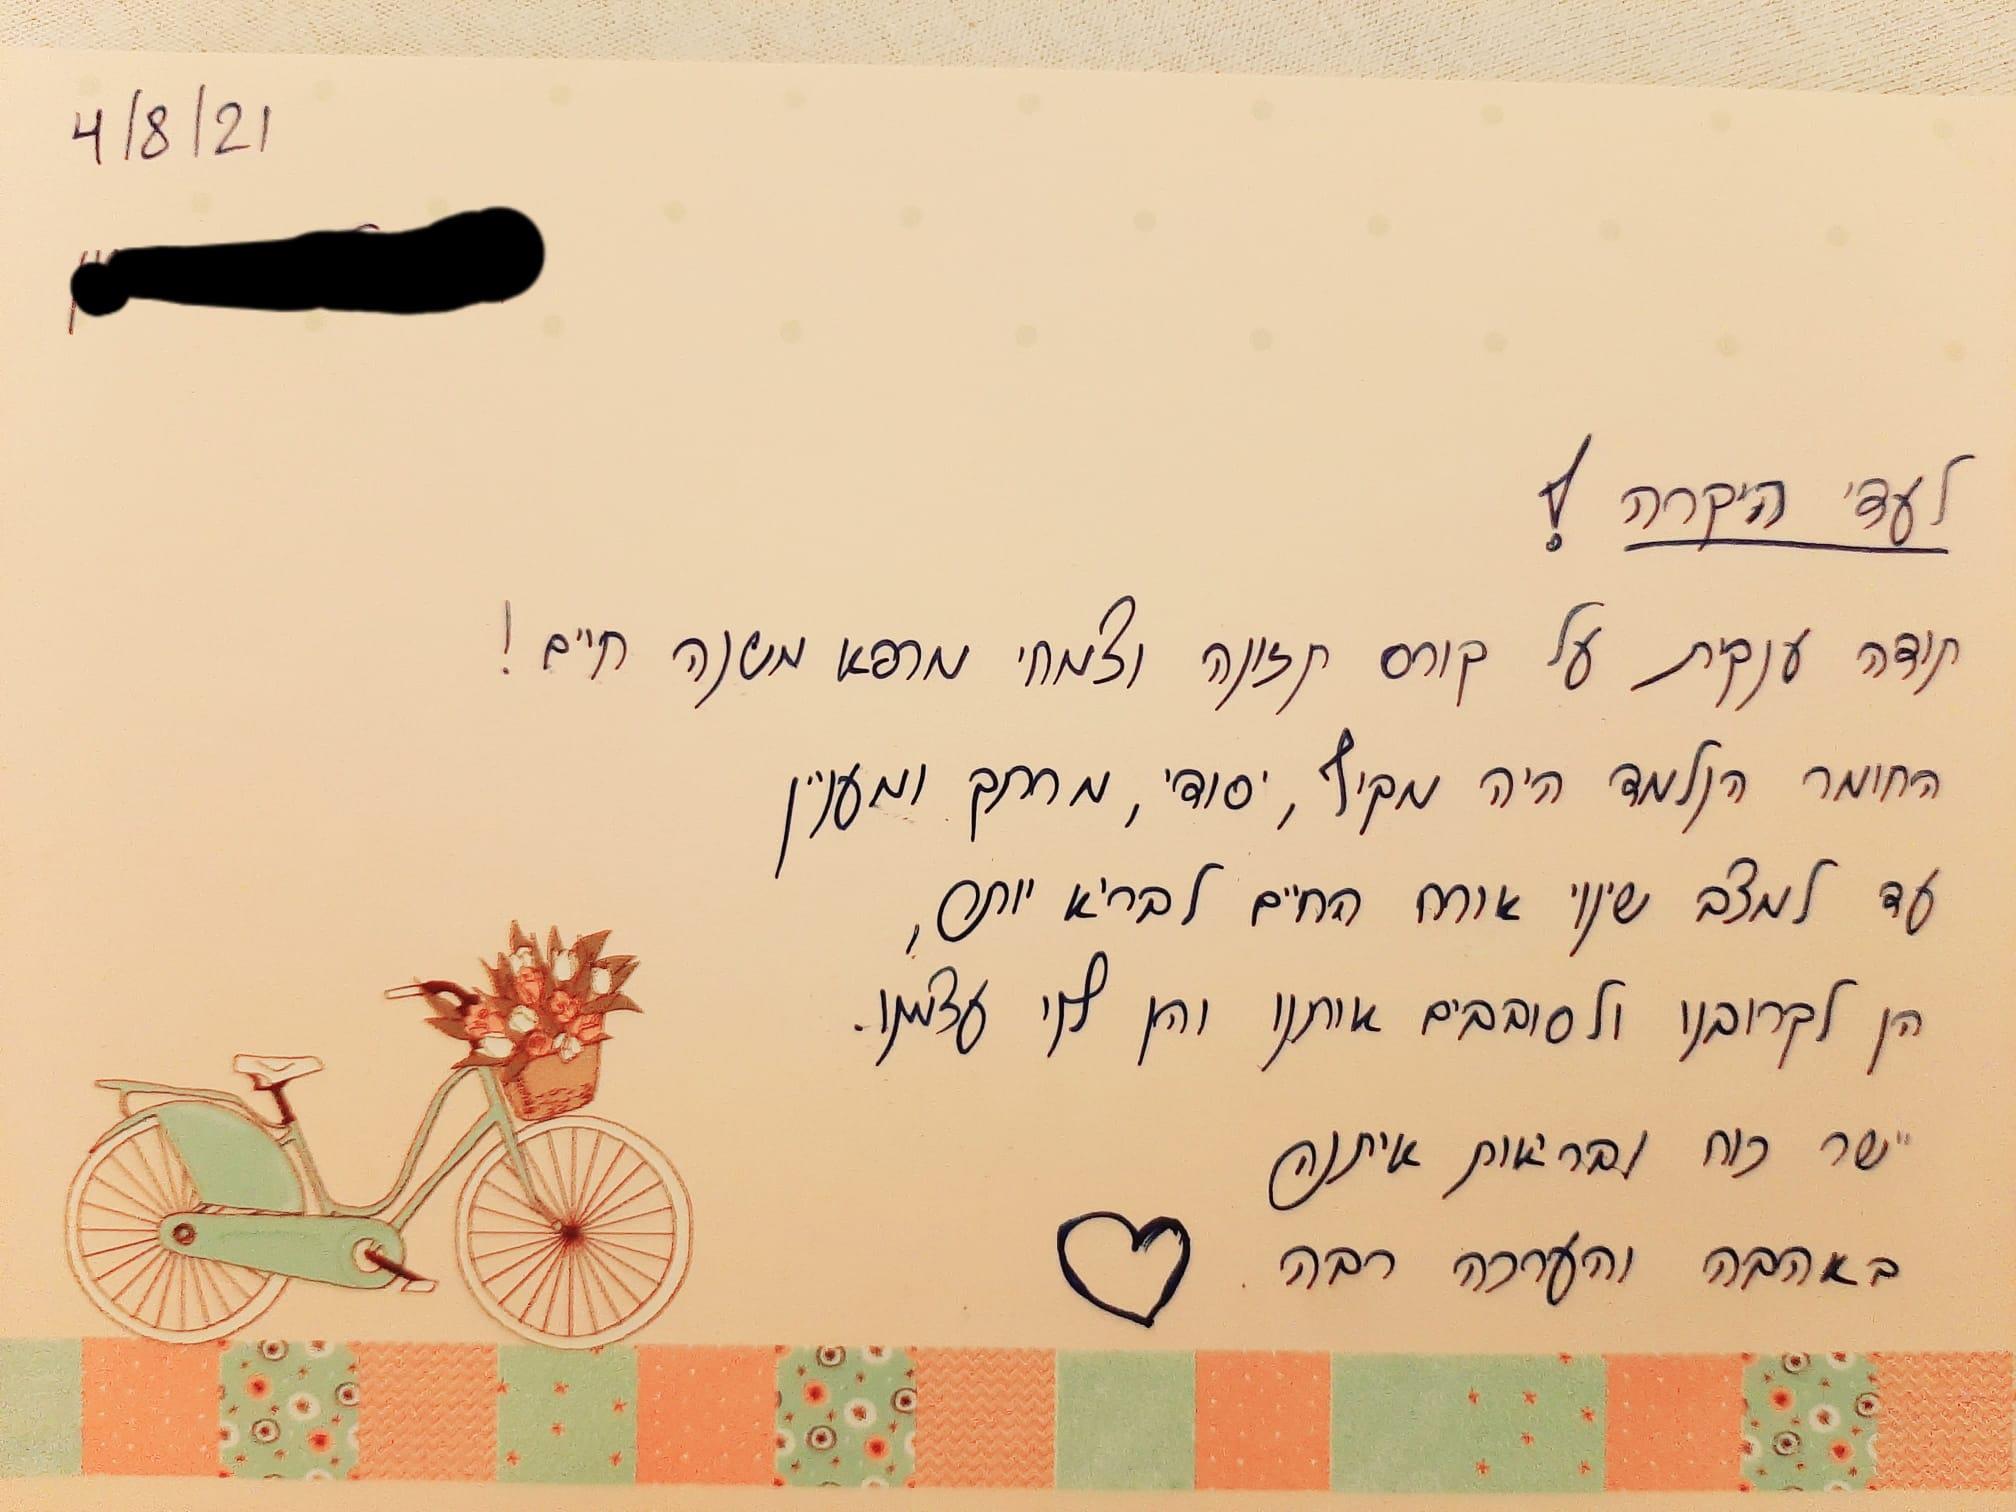 4/8/21
לעדי היקרה!
תודה ענקית על קורס תזונה וצמחי מרפא משנה חיים!
החומר הנלמד היה מקיף, יסודי, מרתק ומעניין
עד למצב שינוי אורח החיים לבריא יותר,
הן לקרובנו ולסובבים אותנו והן לנו עצמנו.
יישר כוח ובריאות איתנה
באהבה והערכה רבה